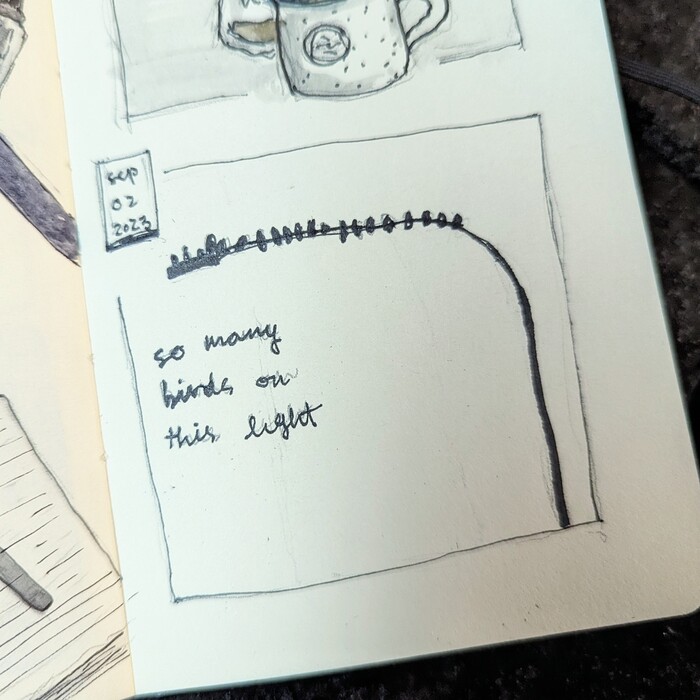 sep
02
2023
so many
birds on
this light